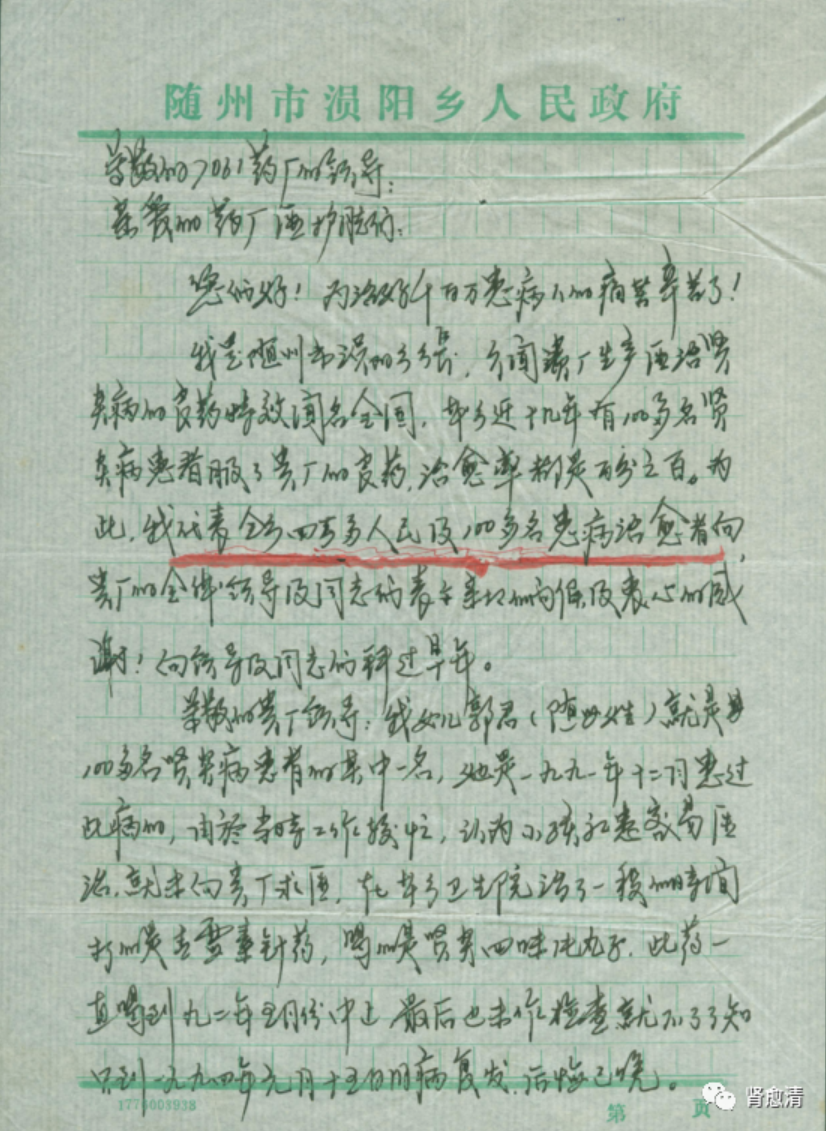 随州市涢阳乡人民政府
尊敬的7061药厂的领导：
恭敬的药厂医护人员们：
您们好！为治好千百万患病人的病苦辛苦了！
我是随州市涢阳乡乡长，今闻贵厂生产医治肾
炎病的良药特效闻名全国，本乡近十几年有100多名肾
炎病患者服了贵厂的良药，治愈率都是百分之百。为
此，我代表全乡四万多人民及100多名患病治愈者向
贵厂的全体领导及同志们表示亲切的问候及衷心的感
谢！向领导及同志们拜过早年。
尊敬的贵厂领导：我女儿郭君（随母姓）就是
100多名肾炎病患者的其中一名，她是一九九一年十二月患过
此病的，由於当时工作较忙，认为小孩初患容易医
治，就未向贵厂求医，在本乡卫生院治了一段的时间
打的是青霉素针药，喝的是肾炎四味片丸子，此药一
直喝到九二年五月份中止，最后也未作检查就不了了知
只到一九九四年元月十五日旧病复发，后悔已晚。
1776003938
第 页
肾愈清